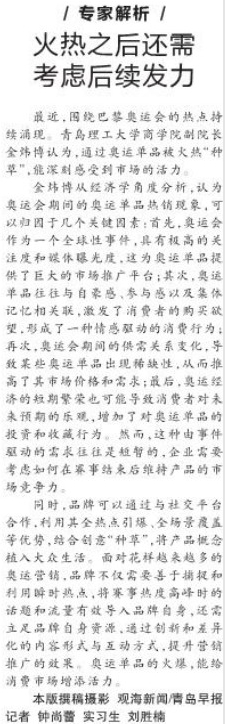 / 专家解析 /
火热之后还需
考虑后续发力
最近，围绕巴黎奥运会的热点持
续涌现。青岛理工大学商学院副院长
金炜博认为，通过奥运单品被火热“种
草”，能深刻感受到市场的活力。
金炜博从经济学角度分析，认为
奥运会期间的奥运单品热销现象，可
以归因于几个关键因素：首先，奥运会
作为一个全球性事件，具有极高的关
注度和媒体曝光度，这为奥运单品提
供了巨大的市场推广平台；其次，奥运
单品往往与自豪感、参与感以及集体
记忆相关联，激发了消费者的购买欲
望，形成了一种情感驱动的消费行为；
再次，奥运会期间的供需关系变化，导
致某些奥运单品出现稀缺性，从而推
高了其市场价格和需求；最后，奥运经
济的短期繁荣也可能导致消费者对未
来预期的乐观，增加了对奥运单品的
投资和收藏行为。然而，这种由事件
驱动的需求往往是短暂的，企业需要
考虑如何在赛事结束后维持产品的市
场竞争力。
同时，品牌可以通过与社交平台
合作，利用其全热点引爆、全场景覆盖
等优势，结合创意“种草”，将产品概念
植入大众生活。面对花样越来越多的
奥运营销，品牌不仅需要善于捕捉和
利用瞬时热点，将赛事热度高峰时的
话题和流量有效导入品牌自身，还需
立足品牌自身资源，通过创新和差异
化的内容形式与互动方式，提升营销
推广的效果。奥运单品的火爆，能给
消费市场增添活力。
本版撰稿摄影 观海新闻/青岛早报
记者 钟尚蕾 实习生 刘胜楠